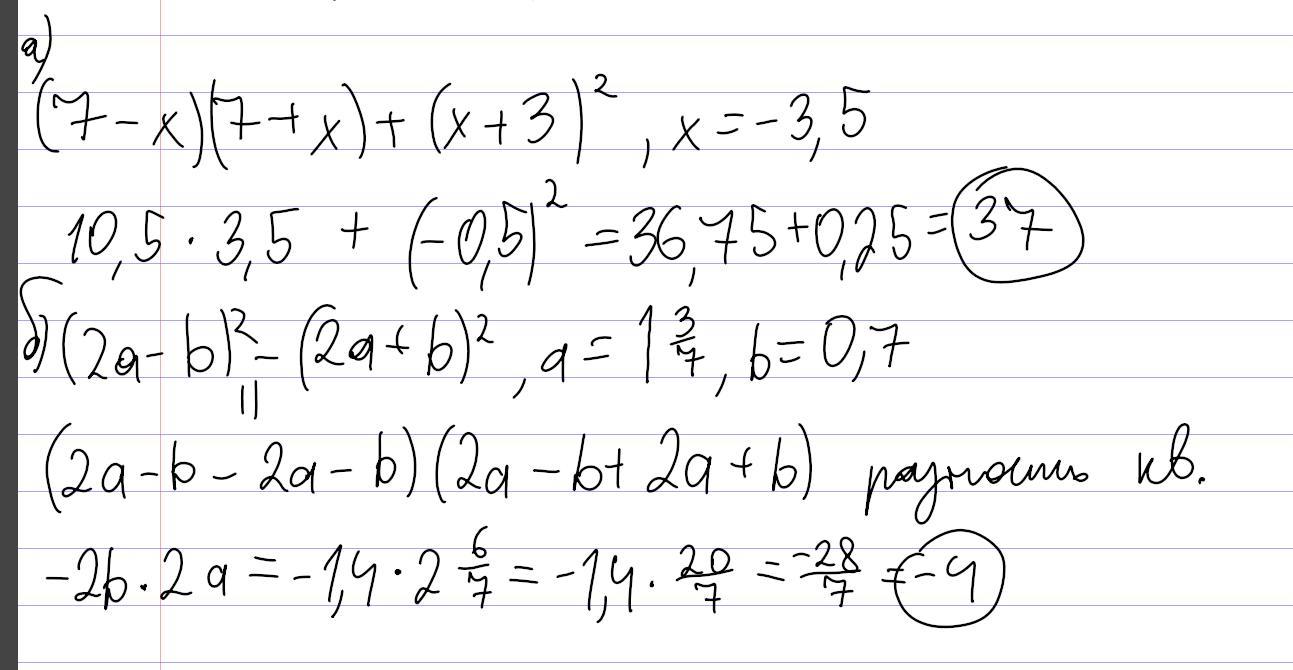 а)
(7-x)(7+x)+(x+3)², x=-3,5
10,5·3,5+(-0,5)²=36,75+0,25=37
б)(2a-b)²-(2a+b)², a=1 3/7, b=0,7
=
(2a-b-2a-b)(2a-b+2a+b) разность кв.
-2b·2a=-1,4·2 6/7=-1,4·20/7=-28/7=-4